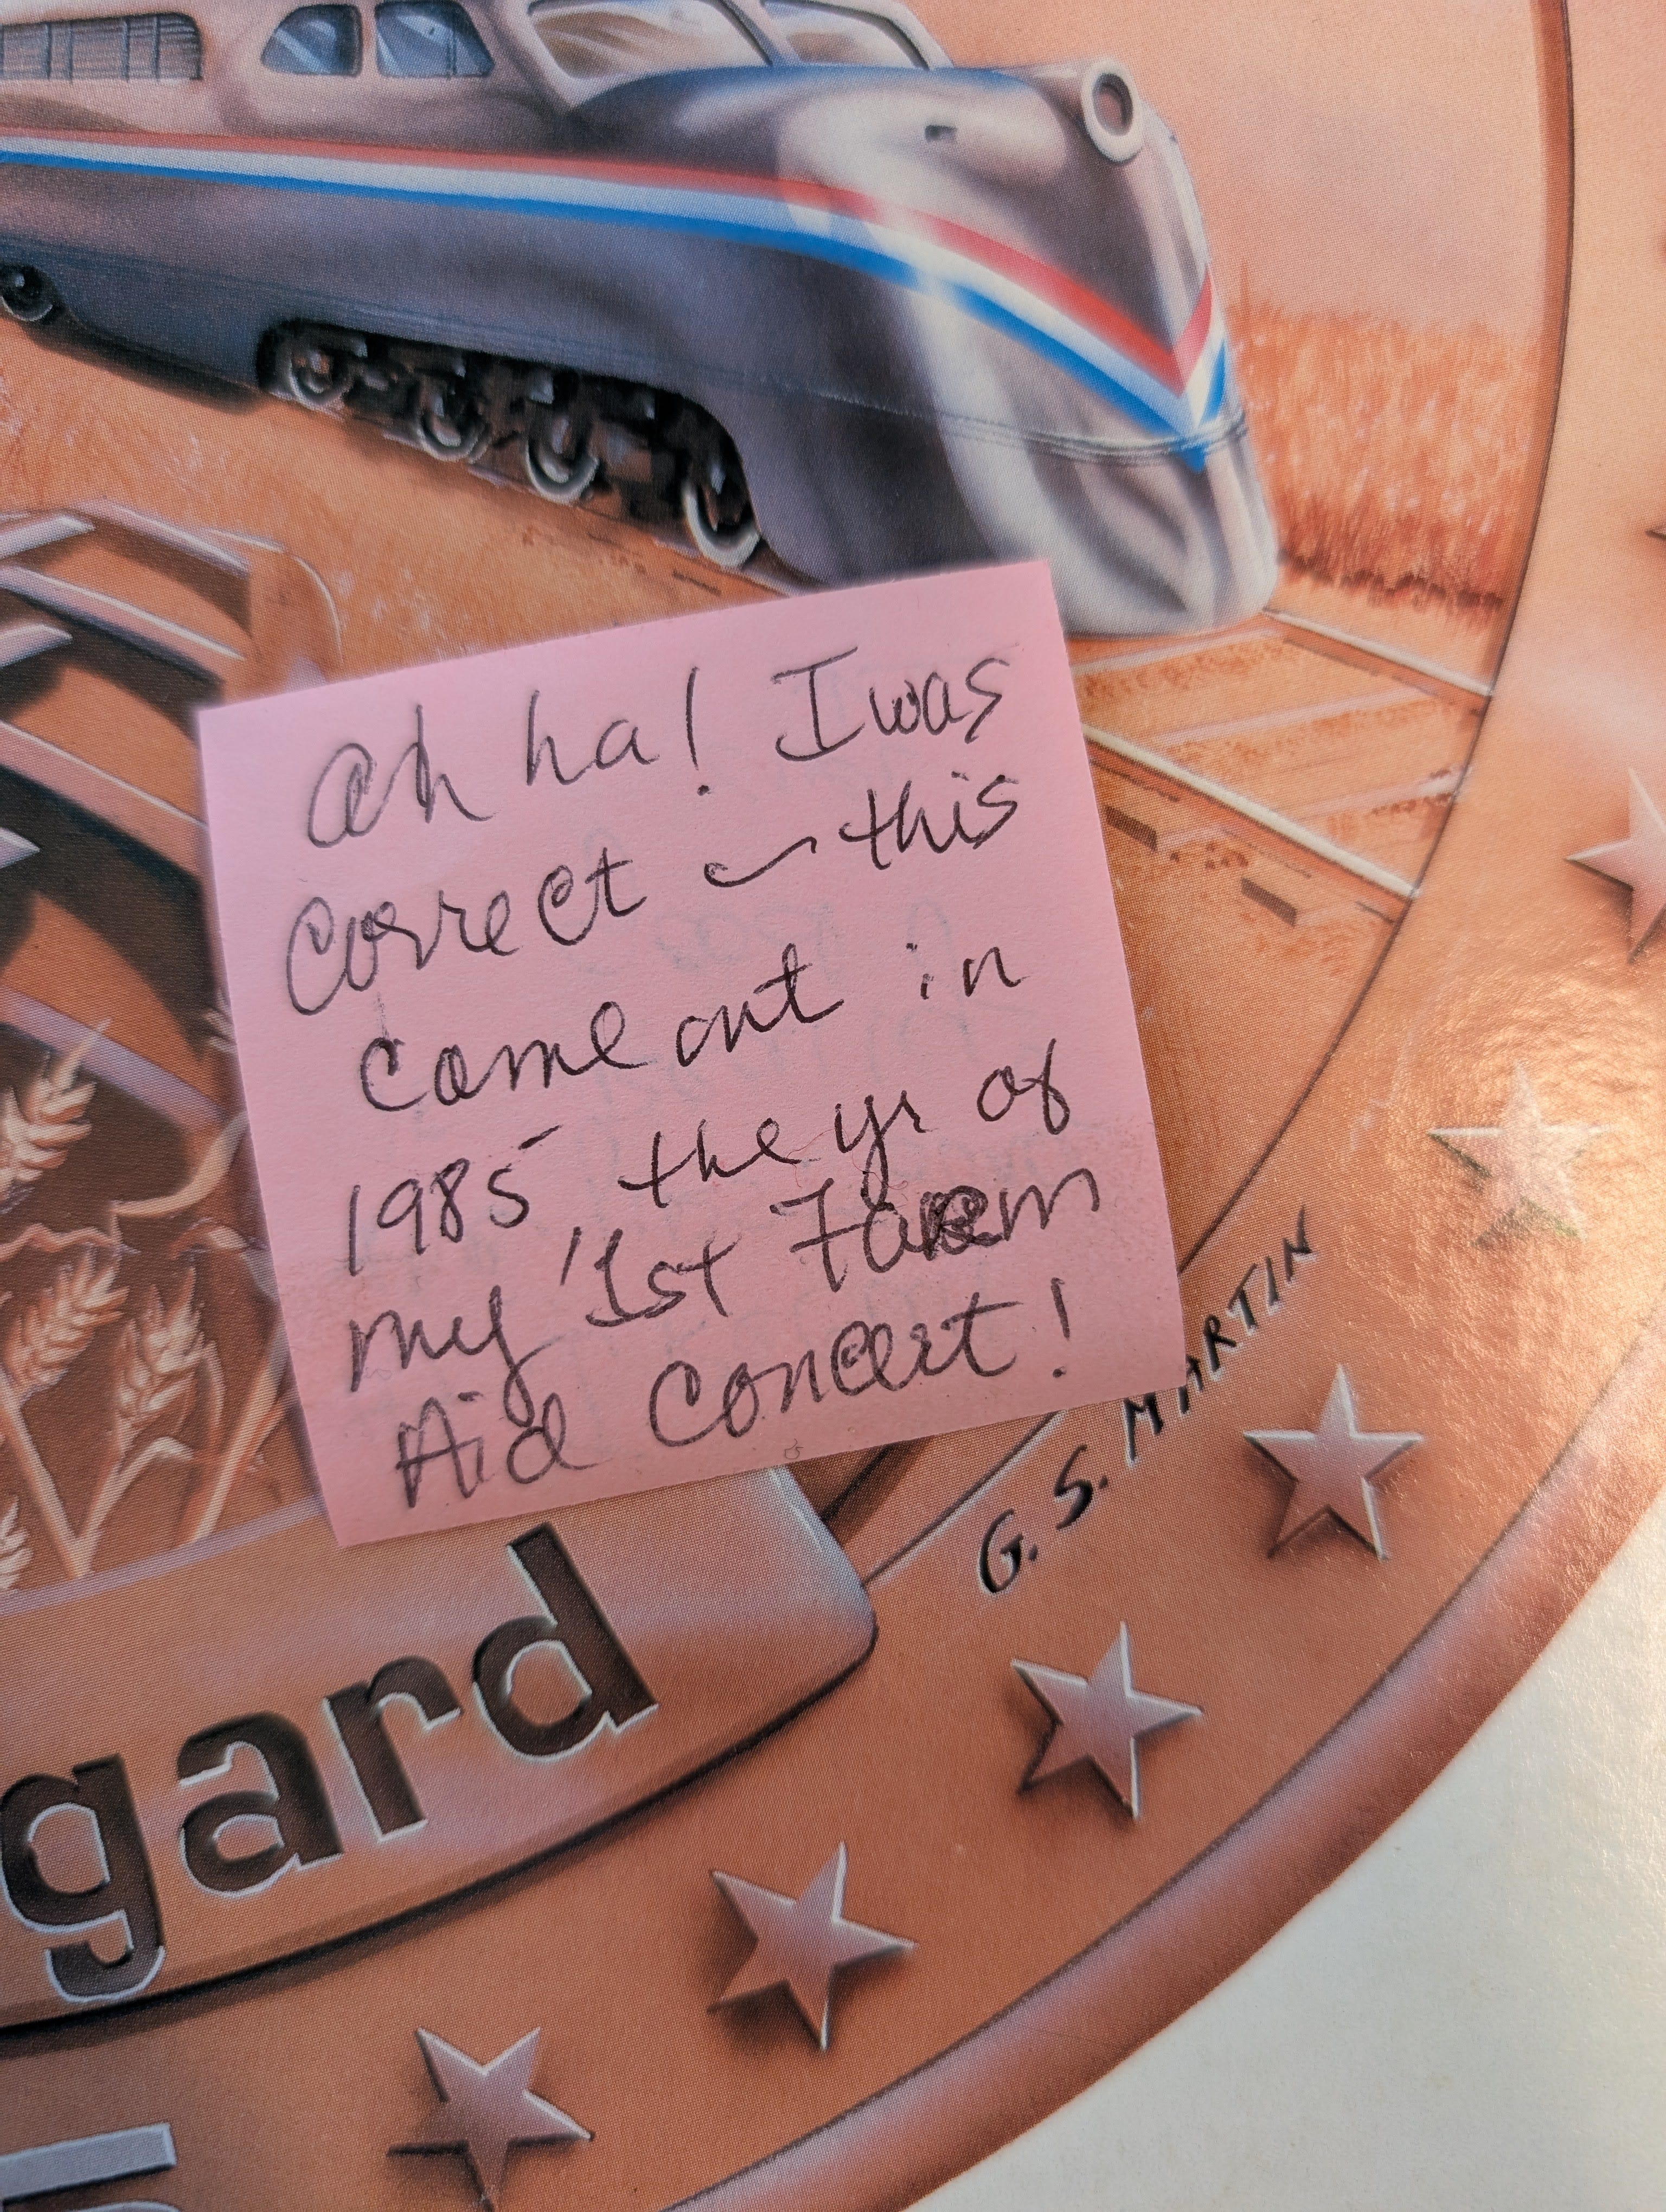 Ah ha! I was
correct – this
came out in
1985 the yr of
my '1st Farm
Aid concert!
G. S. MARTIN
gard